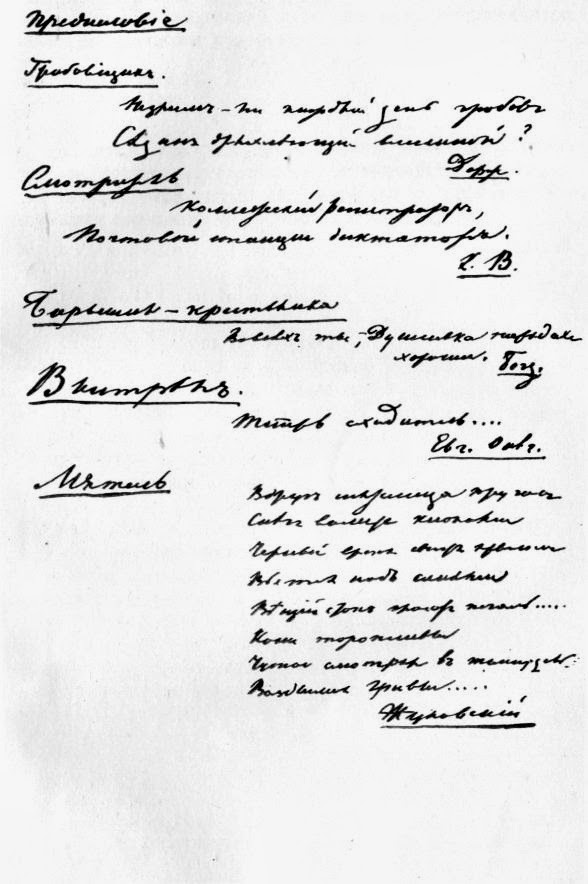 Предисловіе
Гробовщикъ.
Не зримъ-ли каждый день гробовъ
Сѣдинъ дряхлѣющей вселенной?
Держ.
Смотритель
Коллежскій регистраторъ,
Почтовой станціи диктаторъ.
К. В.
Барышня-крестьянка
Во всѣхъ ты, Душенька нарядахъ
хороша. Богд.
Выстрѣлъ.
Теперь сходитесь....
Евг. Онѣг.
Мятель
Вдругъ мятелица кругомъ
Снѣгъ валитъ клоками
Черный вранъ свистя крыломъ
Вьется надъ санями
Вѣщій стонъ гласитъ печаль.....
Кони торопливы
Чутко смотрятъ въ темну даль
Воздымая гривы.....
Жуковскій